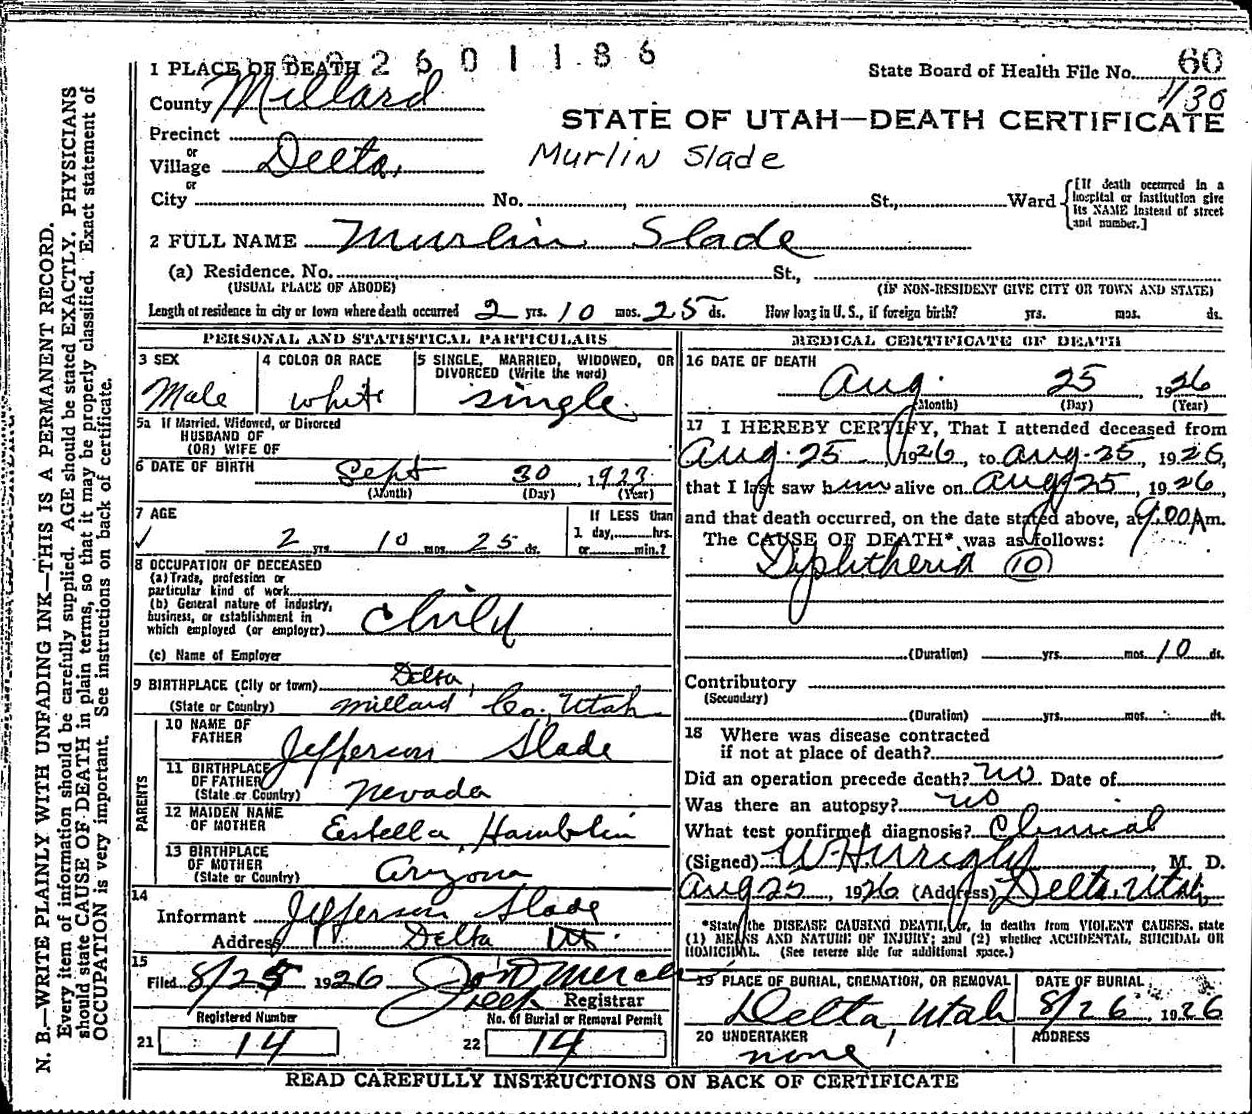 2601186
State Board of Health File No. 60
1/30
1 PLACE OF DEATH
County Millard
STATE OF UTAH—DEATH CERTIFICATE
Precinct
or
Village Delta,
Murlin Slade
or
City No. , St., Ward
[If death occurred in a hospital or institution give its NAME instead of street and number.]
2 FULL NAME Murlin Slade
(a) Residence, No. St.,
(USUAL PLACE OF ABODE) (IF NON-RESIDENT GIVE CITY OR TOWN AND STATE)
Length of residence in city or town where death occurred 2 yrs. 10 mos. 25 ds. How long in U. S., if foreign birth? yrs. mos. ds.
PERSONAL AND STATISTICAL PARTICULARS
3 SEX
Male
4 COLOR OR RACE
white
5 SINGLE, MARRIED, WIDOWED, OR
DIVORCED (Write the word)
single
5a If Married, Widowed, or Divorced
HUSBAND OF
(OR) WIFE OF
6 DATE OF BIRTH Sept 30, 1923
(Month) (Day) (Year)
7 AGE
2 yrs. 10 mos. 25 ds.
If LESS than
1 day, hrs.
or min.?
8 OCCUPATION OF DECEASED
(a) Trade, profession or
particular kind of work
(b) General nature of industry,
business, or establishment in
which employed (or employer) child
(c) Name of Employer
9 BIRTHPLACE (City or town) Delta,
(State or Country) Millard Co., Utah
PARENTS
10 NAME OF
FATHER Jefferson Slade
11 BIRTHPLACE
OF FATHER
(State or Country) Nevada
12 MAIDEN NAME
OF MOTHER Estella Hamblin
13 BIRTHPLACE
OF MOTHER
(State or Country) Arizona
14
Informant Jefferson Slade
Address Delta Ut.
15
Filed 8/25 1926
Registrar
Registered Number
21 14
No. of Burial or Removal Permit
22 14
MEDICAL CERTIFICATE OF DEATH
16 DATE OF DEATH
Aug. 25 1926
(Month) (Day) (Year)
17 I HEREBY CERTIFY, That I attended deceased from
Aug. 25 1926, to Aug. 25, 1926,
that I last saw him alive on Aug 25, 1926,
and that death occurred, on the date stated above, at 9:00 Am.
The CAUSE OF DEATH* was as follows:
Diphtheria 10
(Duration) yrs. mos. 10 ds.
Contributory
(Secondary)
(Duration) yrs. mos. ds.
18 Where was disease contracted
if not at place of death?
Did an operation precede death? no Date of
Was there an autopsy? no
What test confirmed diagnosis? Clinical
(Signed) W H Wright, M. D.
Aug 25, 1926 (Address) Delta, Utah,
*State the DISEASE CAUSING DEATH, or, in deaths from VIOLENT CAUSES, state
(1) MEANS AND NATURE OF INJURY; and (2) whether ACCIDENTAL, SUICIDAL OR
HOMICIDAL. (See reverse side for additional space.)
19 PLACE OF BURIAL, CREMATION, OR REMOVAL
Delta, Utah
DATE OF BURIAL
8/26, 1926
20 UNDERTAKER
none
ADDRESS
READ CAREFULLY INSTRUCTIONS ON BACK OF CERTIFICATE
N. B.—WRITE PLAINLY WITH UNFADING INK—THIS IS A PERMANENT RECORD.
Every item of information should be carefully supplied. AGE should be stated EXACTLY. PHYSICIANS
should state CAUSE OF DEATH in plain terms, so that it may be properly classified. Exact statement of
OCCUPATION is very important. See instructions on back of certificate.